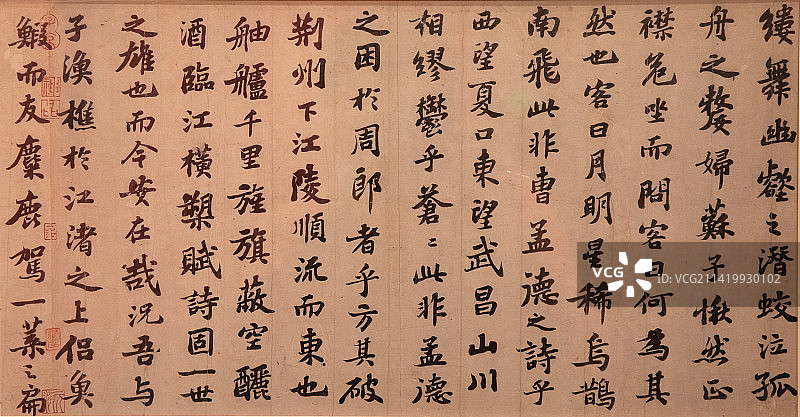 縷舞幽壑之潛蛟泣孤
舟之嫠婦蘇子愀然正
襟危坐而問客曰何為其
然也客曰月明星稀烏鵲
南飛此非曹孟德之詩乎
西望夏口東望武昌山川
相繆鬱乎蒼〻此非孟德
之困於周郎者乎方其破
荊州下江陵順流而東也
舳艫千里旌旗蔽空釃
酒臨江橫槊賦詩固一世
之雄也而今安在哉況吾與
子漁樵於江渚之上侶魚
鰕而友麋鹿駕一葉之扁
VCG
VCG.COM
ID:VCG211419930102